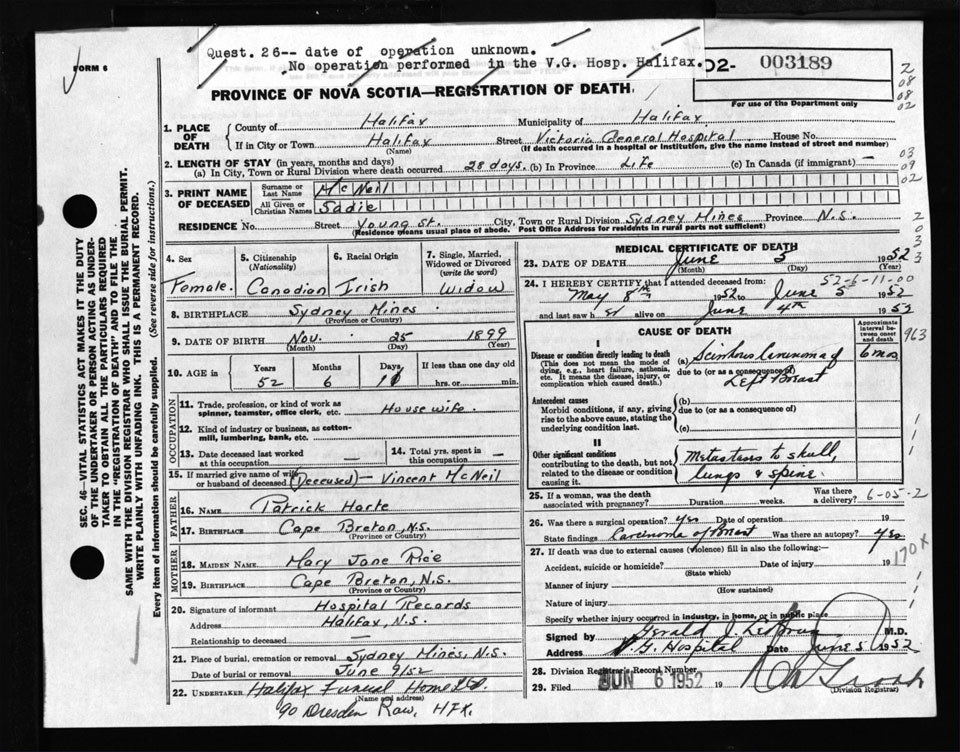 Quest. 26-- date of operation unknown.
No operation performed in the V.G. Hosp. Halifax.
FORM 6
02- 003189
For use of the Department only
PROVINCE OF NOVA SCOTIA—REGISTRATION OF DEATH
2
08
08
02
03
09
02
2
0
3
3
SEC. 46—VITAL STATISTICS ACT MAKES IT THE DUTY
OF THE UNDERTAKER OR PERSON ACTING AS UNDER-
TAKER TO OBTAIN ALL THE PARTICULARS REQUIRED
IN THE "REGISTRATION OF DEATH" AND TO FILE THE
SAME WITH THE DIVISION REGISTRAR WHO SHALL ISSUE THE BURIAL PERMIT.
WRITE PLAINLY WITH UNFADING INK. THIS IS A PERMANENT RECORD.
Every item of information should be carefully supplied. (See reverse side for instructions.)
1. PLACE OF DEATH
County of Halifax Municipality of Halifax
If in City or Town Halifax Street Victoria General Hospital House No.
(Name) (If death occurred in a hospital or institution, give the name instead of street and number)
2. LENGTH OF STAY (in years, months and days)
(a) In City, Town or Rural Division where death occurred 28 days. (b) In Province Life (c) In Canada (if immigrant) —
3. PRINT NAME OF DECEASED
Surname or Last Name McNeil
All Given or Christian Names Sadie
RESIDENCE No. Street Young St. City, Town or Rural Division Sydney Mines Province N.S.
(Residence means usual place of abode. Post Office Address for residents in rural parts not sufficient)
4. Sex Female.
5. Citizenship (Nationality) Canadian
6. Racial Origin Irish
7. Single, Married, Widowed or Divorced (write the word) Widow
8. BIRTHPLACE Sydney Mines
(Province or Country)
9. DATE OF BIRTH Nov. 25 1899
(Month) (Day) (Year)
10. AGE in Years Months Days If less than one day
52 6 hrs. or min.
OCCUPATION
11. Trade, profession, or kind of work as
spinner, teamster, office clerk, etc. Housewife.
12. Kind of industry or business, as cotton-
mill, lumbering, bank, etc.
13. Date deceased last worked
at this occupation —
14. Total yrs. spent in
this occupation —
15. If married give name of wife
or husband of deceased (Deceased) — Vincent McNeil
FATHER
16. NAME Patrick Harte
17. BIRTHPLACE Cape Breton, N.S.
(Province or Country)
MOTHER
18. MAIDEN NAME Mary Jane Rice
19. BIRTHPLACE Cape Breton, N.S.
(Province or Country)
20. Signature of informant Hospital Records
Address Halifax, N.S.
Relationship to deceased —
21. Place of burial, cremation or removal Sydney Mines, N.S.
Date of burial or removal June 9/52
22. UNDERTAKER Halifax Funeral Home Ltd.
(Name and address)
90 Dresden Row, HFX.
MEDICAL CERTIFICATE OF DEATH
23. DATE OF DEATH June 5 1952
(Month) (Day) (Year)
52-6-11-00
24. I HEREBY CERTIFY that I attended deceased from:
May 8th 1952 to June 5 1952
and last saw h er alive on June 4th 1952
CAUSE OF DEATH
Approximate interval between onset and death
963
I
Disease or condition directly leading to death
(This does not mean the mode of
dying, e.g., heart failure, asthenia,
etc. It means the disease, injury, or
complication which caused death.)
(a) Scirrhous Carcinoma of 6 mos
due to (or as a consequence of)
Left Breast
Antecedent causes
Morbid conditions, if any, giving
rise to the above cause, stating the
underlying condition last.
(b)
due to (or as a consequence of)
(c)
II
Other significant conditions
contributing to the death, but not
related to the disease or condition
causing it.
Metastases to skull,
lungs & spine.
25. If a woman, was the death
associated with pregnancy? Duration weeks. Was there a delivery? 6-05-2
26. Was there a surgical operation? Yes Date of operation 19
State findings Carcinoma of Breast Was there an autopsy? Yes
170X
27. If death was due to external causes (violence) fill in also the following:—
Accident, suicide or homicide? Date of injury 19
(State which)
Manner of injury
(How sustained)
Nature of injury
Specify whether injury occurred in industry, in home, or in public place
Signed by Gerald J. M.D.
Address V.G. Hospital Date June 5 1952
28. Division Registrar's Record Number
29. Filed JUN 6 1952 19
(Division Registrar)